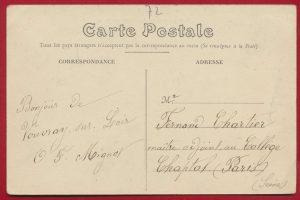 72
Carte Postale
Tous les pays étrangers n'acceptent pas la correspondance au recto (Se renseigner à la Poste)
CORRESPONDANCE
ADRESSE
Bonjour de
Vouvray sur Loir
F. Mignot
M.
Fernand Chartier
maître adjoint au Collège
Chaptal (Paris)
(Seine)